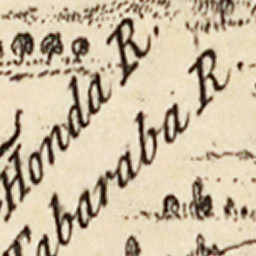 Honda R.
Tabaraba R.